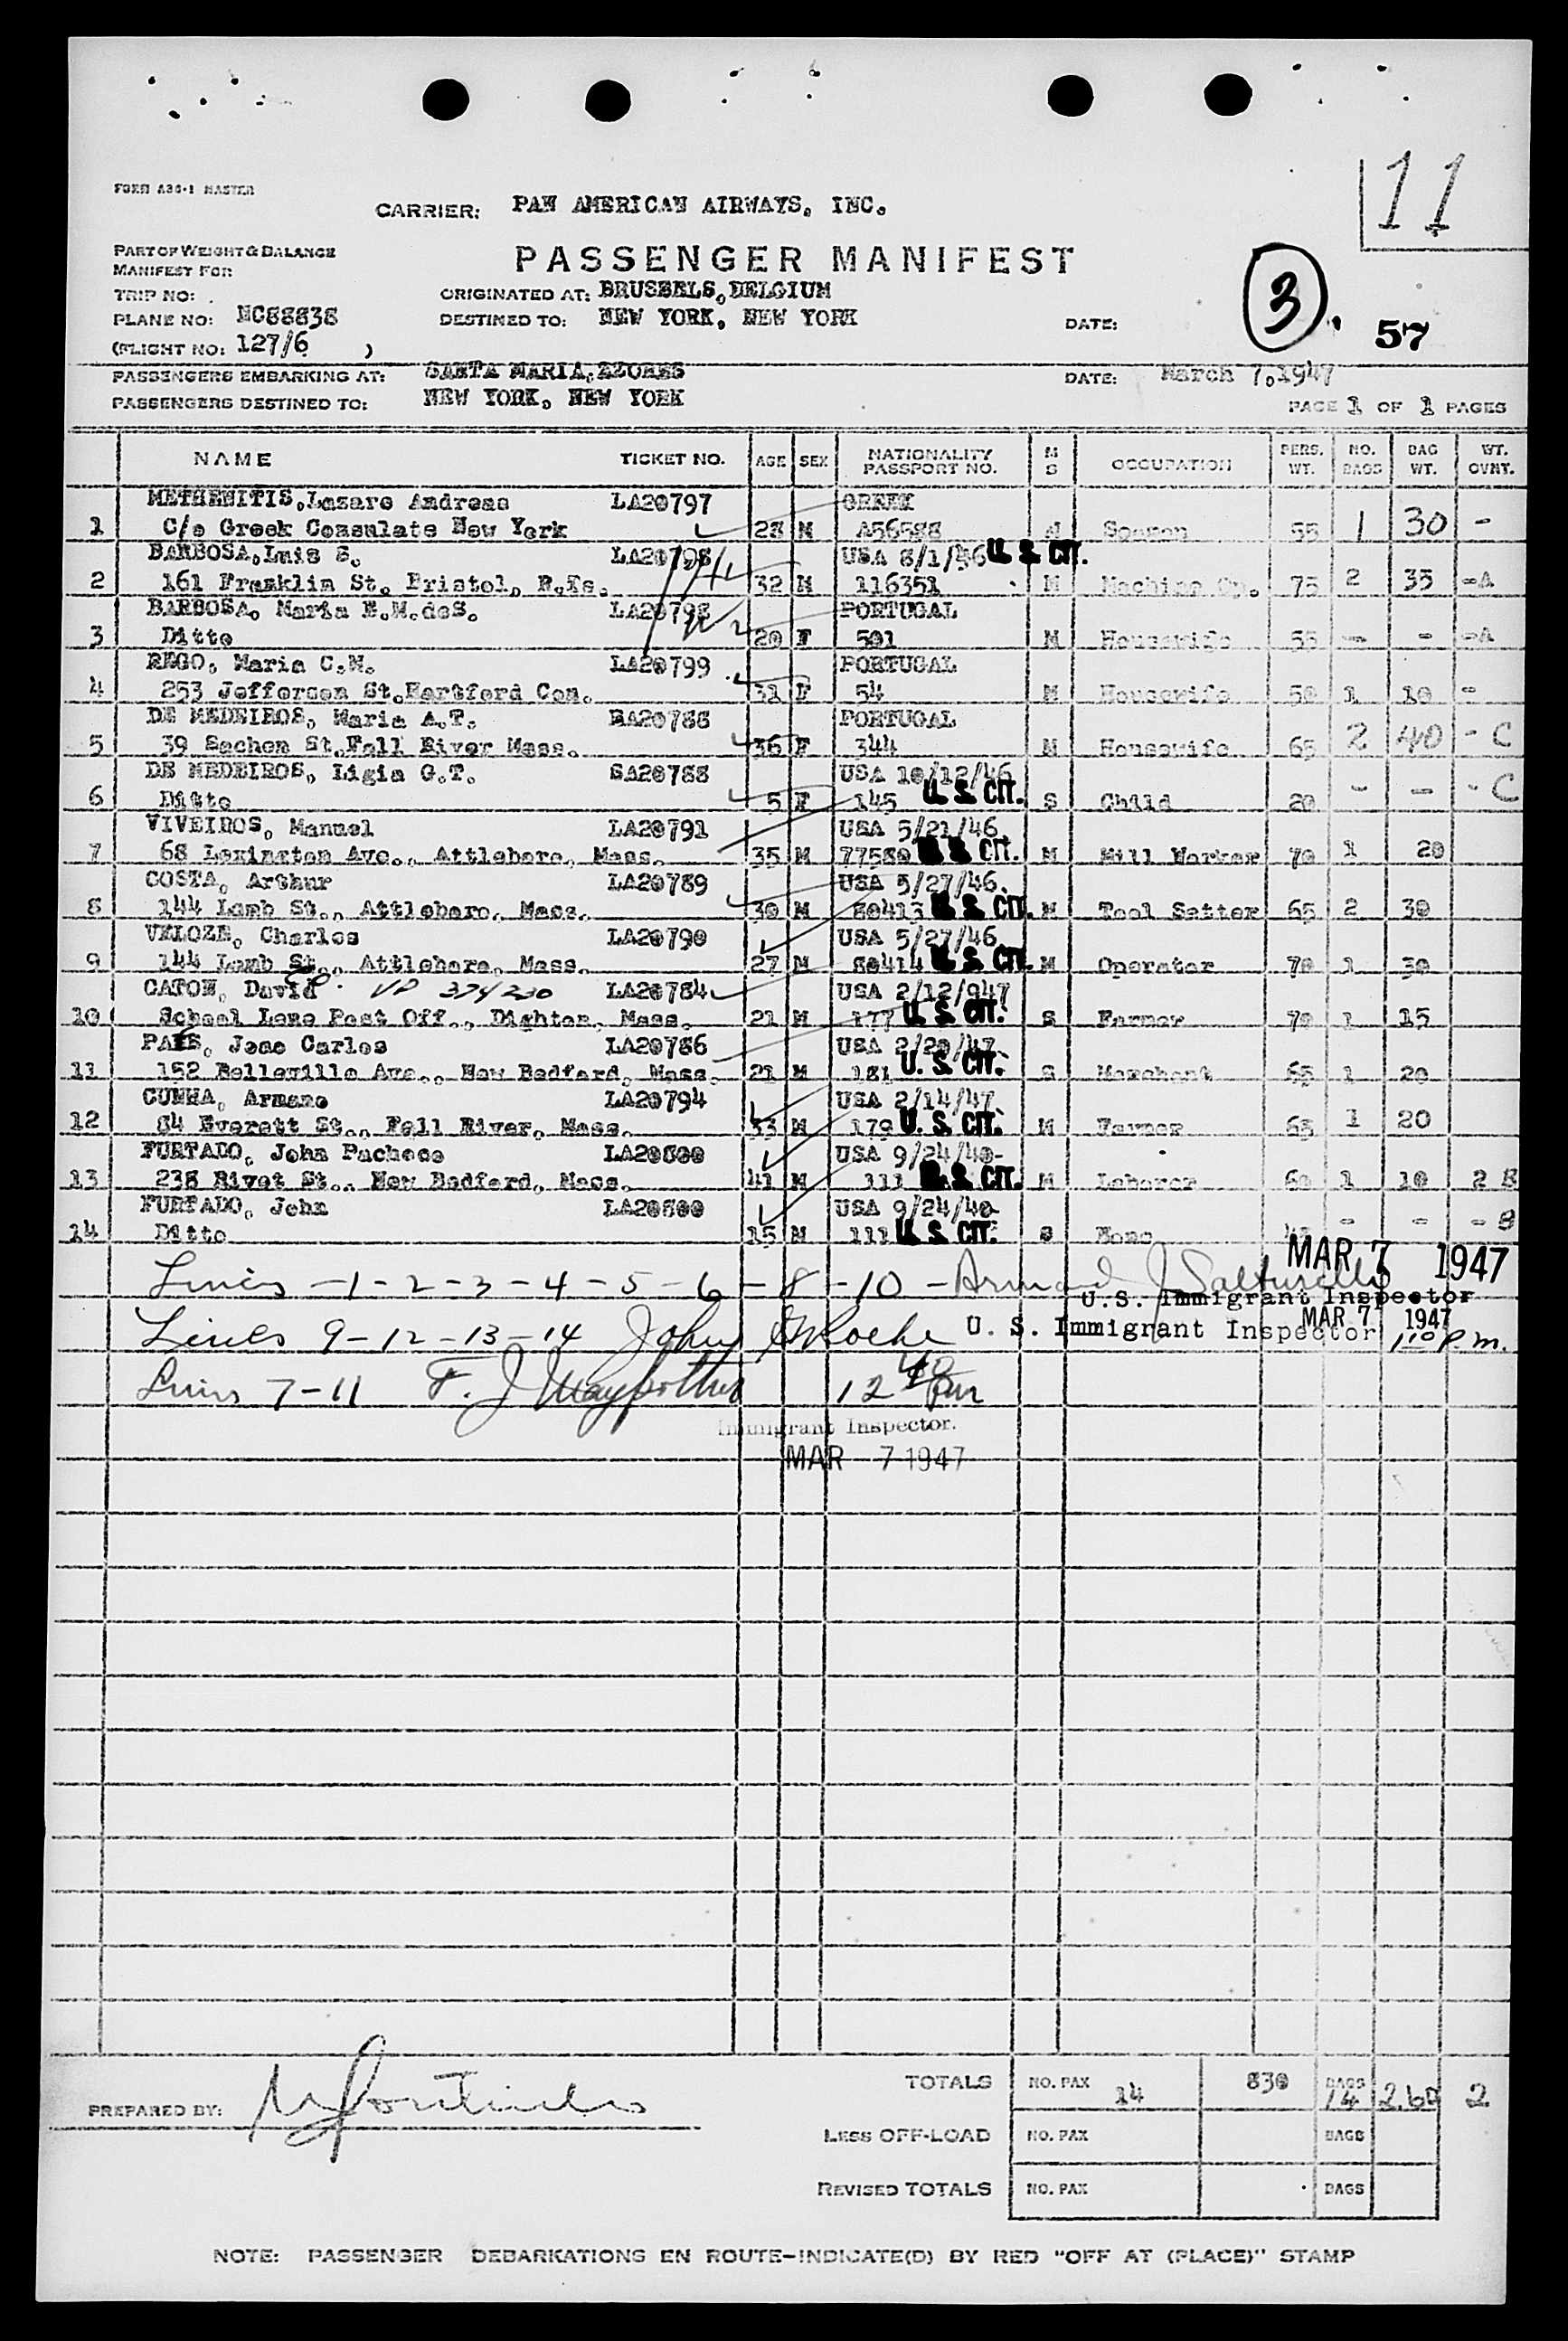 11
FORM A30-1 MASTER
CARRIER: PAN AMERICAN AIRWAYS, INC.
PART OF WEIGHT & BALANCE
MANIFEST FOR
PASSENGER MANIFEST
TRIP NO:
ORIGINATED AT: BRUSSELS, BELGIUM
3
PLANE NO: NC88838
DESTINED TO: NEW YORK, NEW YORK
DATE:
57
(FLIGHT NO: 127/6 )
PASSENGERS EMBARKING AT: SANTA MARIA, AZORES
DATE: March 7, 1947
PASSENGERS DESTINED TO: NEW YORK, NEW YORK
PAGE 1 OF 1 PAGES
NAME TICKET NO. AGE SEX NATIONALITY PASSPORT NO. M S OCCUPATION PERS. WT. NO. BAGS BAG WT. WT. OVNT.
METHENITIS, Lazaro Andreas LA20797 GREEK
1 C/o Greek Consulate New York 28 M A56588 M Seaman 55 1 30 -
BARBOSA, Luis S. LA20798 USA 8/1/46 U. S. CIT.
2 161 Franklin St. Bristol, R.Is. 32 M 116351 M Machine Op. 75 2 35 -A
BARBOSA, Maria E.M.deS. LA20798 PORTUGAL
3 Ditto 20 F 501 M Housewife 55 - - -A
REGO, Maria C.M. LA20799 PORTUGAL
4 253 Jefferson St. Hartford Con. 31 F 54 M Housewife 50 1 10 -
DE MEDEIROS, Maria A.T. LA20788 PORTUGAL
5 39 Sachem St. Fall River Mass. 36 F 344 M Housewife 65 2 40 - C
DE MEDEIROS, Ligia G.T. SA20788 USA 10/12/46
6 Ditto 5 F 145 U. S. CIT. S Child 20 - - - C
VIVEIROS, Manuel LA20791 USA 5/21/46
7 68 Lexington Ave., Attleboro, Mass. 35 M 77580 U. S. CIT. M Mill Worker 70 1 20
COSTA, Arthur LA20789 USA 5/27/46
8 144 Lamb St., Attleboro, Mass. 30 M 80413 U. S. CIT. M Tool Setter 65 2 30
VELOZE, Charles LA20790 USA 5/27/46
9 144 Lamb St., Attleboro, Mass. 27 M 80414 U. S. CIT. M Operator 70 1 30
CATON, David VP 374230 LA20784 USA 2/12/947
10 School Lane Post Off., Dighton, Mass. 21 M 177 U. S. CIT. S Farmer 70 1 15
PAIS, Joao Carlos LA20786 USA 2/20/47
11 152 Belleville Ave., New Bedford, Mass. 21 M 181 U. S. CIT. S Merchant 65 1 20
CUNHA, Armano LA20794 USA 2/14/47
12 84 Everett St., Fall River, Mass. 33 M 179 U. S. CIT. M Farmer 65 1 20
FURTADO, John Pacheco LA20800 USA 9/24/40-
13 238 Rivet St., New Bedford, Mass. 41 M 111 U. S. CIT. M Laborer 60 1 10 2 B
FURTADO, John LA20800 USA 9/24/40-
14 Ditto 15 M 111 U. S. CIT. S None 45 - - - B
Lines -1-2-3-4-5-6-8-10- Armand J Salturelli MAR 7 1947
U.S. Immigrant Inspector
Lines 9-12-13-14 John Roche U. S. Immigrant Inspector MAR 7 1947 1 10 P.m.
Lines 7-11 F. J. 12 40 Pm
Immigrant Inspector.
MAR 7 1947
TOTALS NO. PAX 14 830 BAGS 14 260 2
PREPARED BY:
LESS OFF-LOAD NO. PAX BAGS
REVISED TOTALS NO. PAX BAGS
NOTE: PASSENGER DEBARKATIONS EN ROUTE-INDICATE(D) BY RED "OFF AT (PLACE)" STAMP